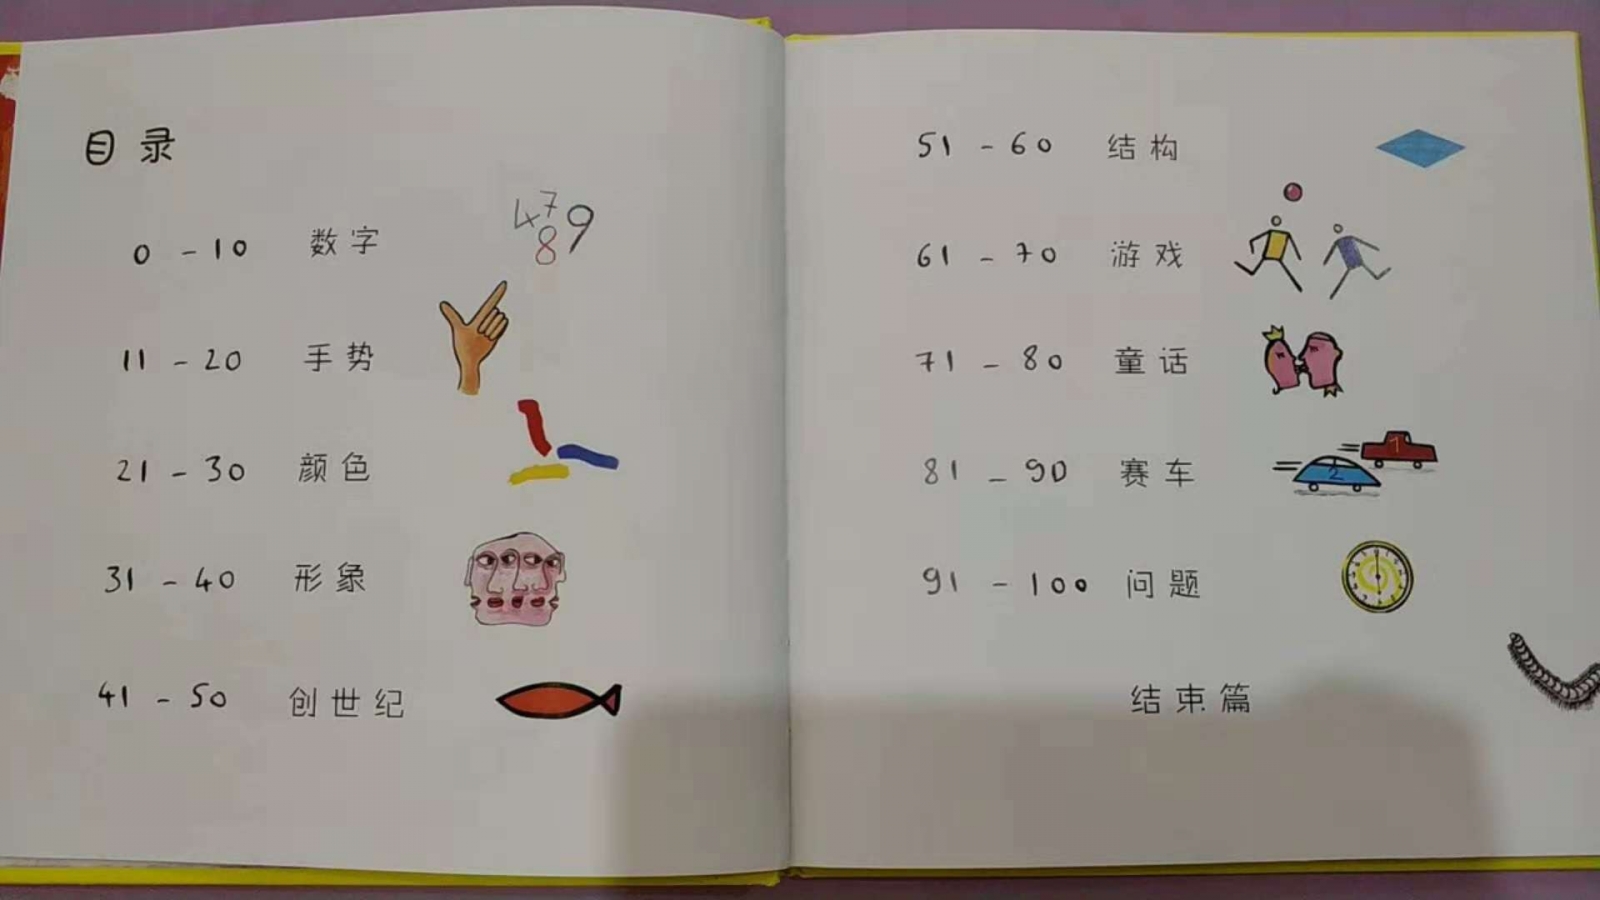 目录
0 - 10 数字
4 7 8 9
11 - 20 手势
21 - 30 颜色
31 - 40 形象
41 - 50 创世纪
51 - 60 结构
61 - 70 游戏
71 - 80 童话
81 - 90 赛车
1
2
91 - 100 问题
结束篇